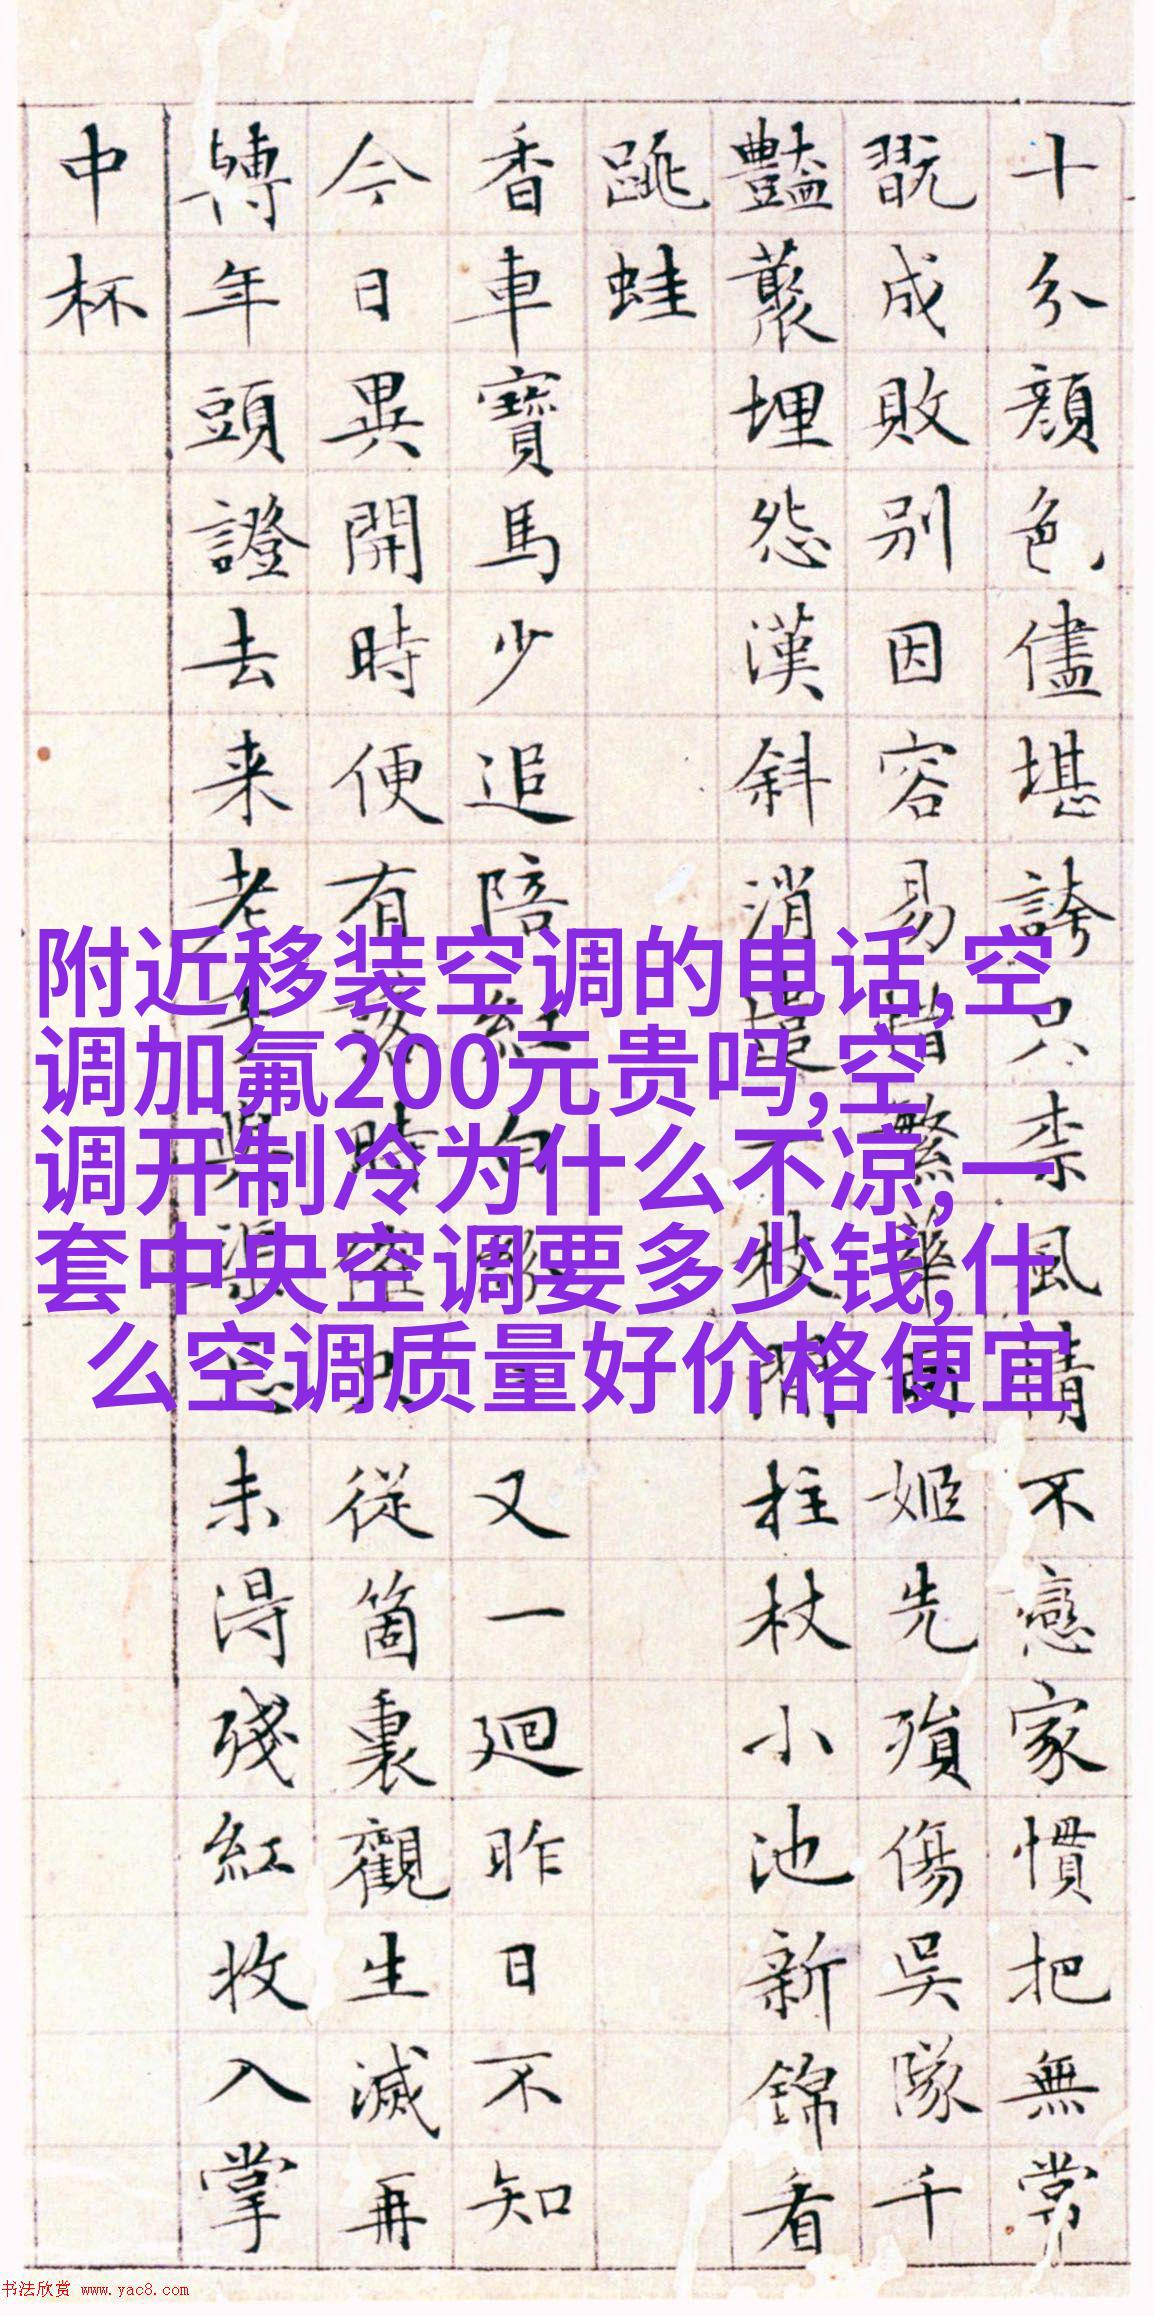 十分顔色儘堪誇只柰風情不戀家慣把無常
翫成敗别因容易惜繁華兩姬先殞傷吳隊千
豔藂埋怨漢斜消遣一枝閒柱杖小池新錦看
跳蛙
香車寶馬少追陪紅白都又一廻昨日不知
今日異開時便有落時催只從箇裏觀生滅再
轉年頭證去来老子與渠忘未得殘紅收入掌
中杯
附近移装空调的电话,空
调加氟200元贵吗,空
调开制冷为什么不凉,一
套中央空调要多少钱,什
么空调质量好价格便宜
书法欣赏 www.yac8.com